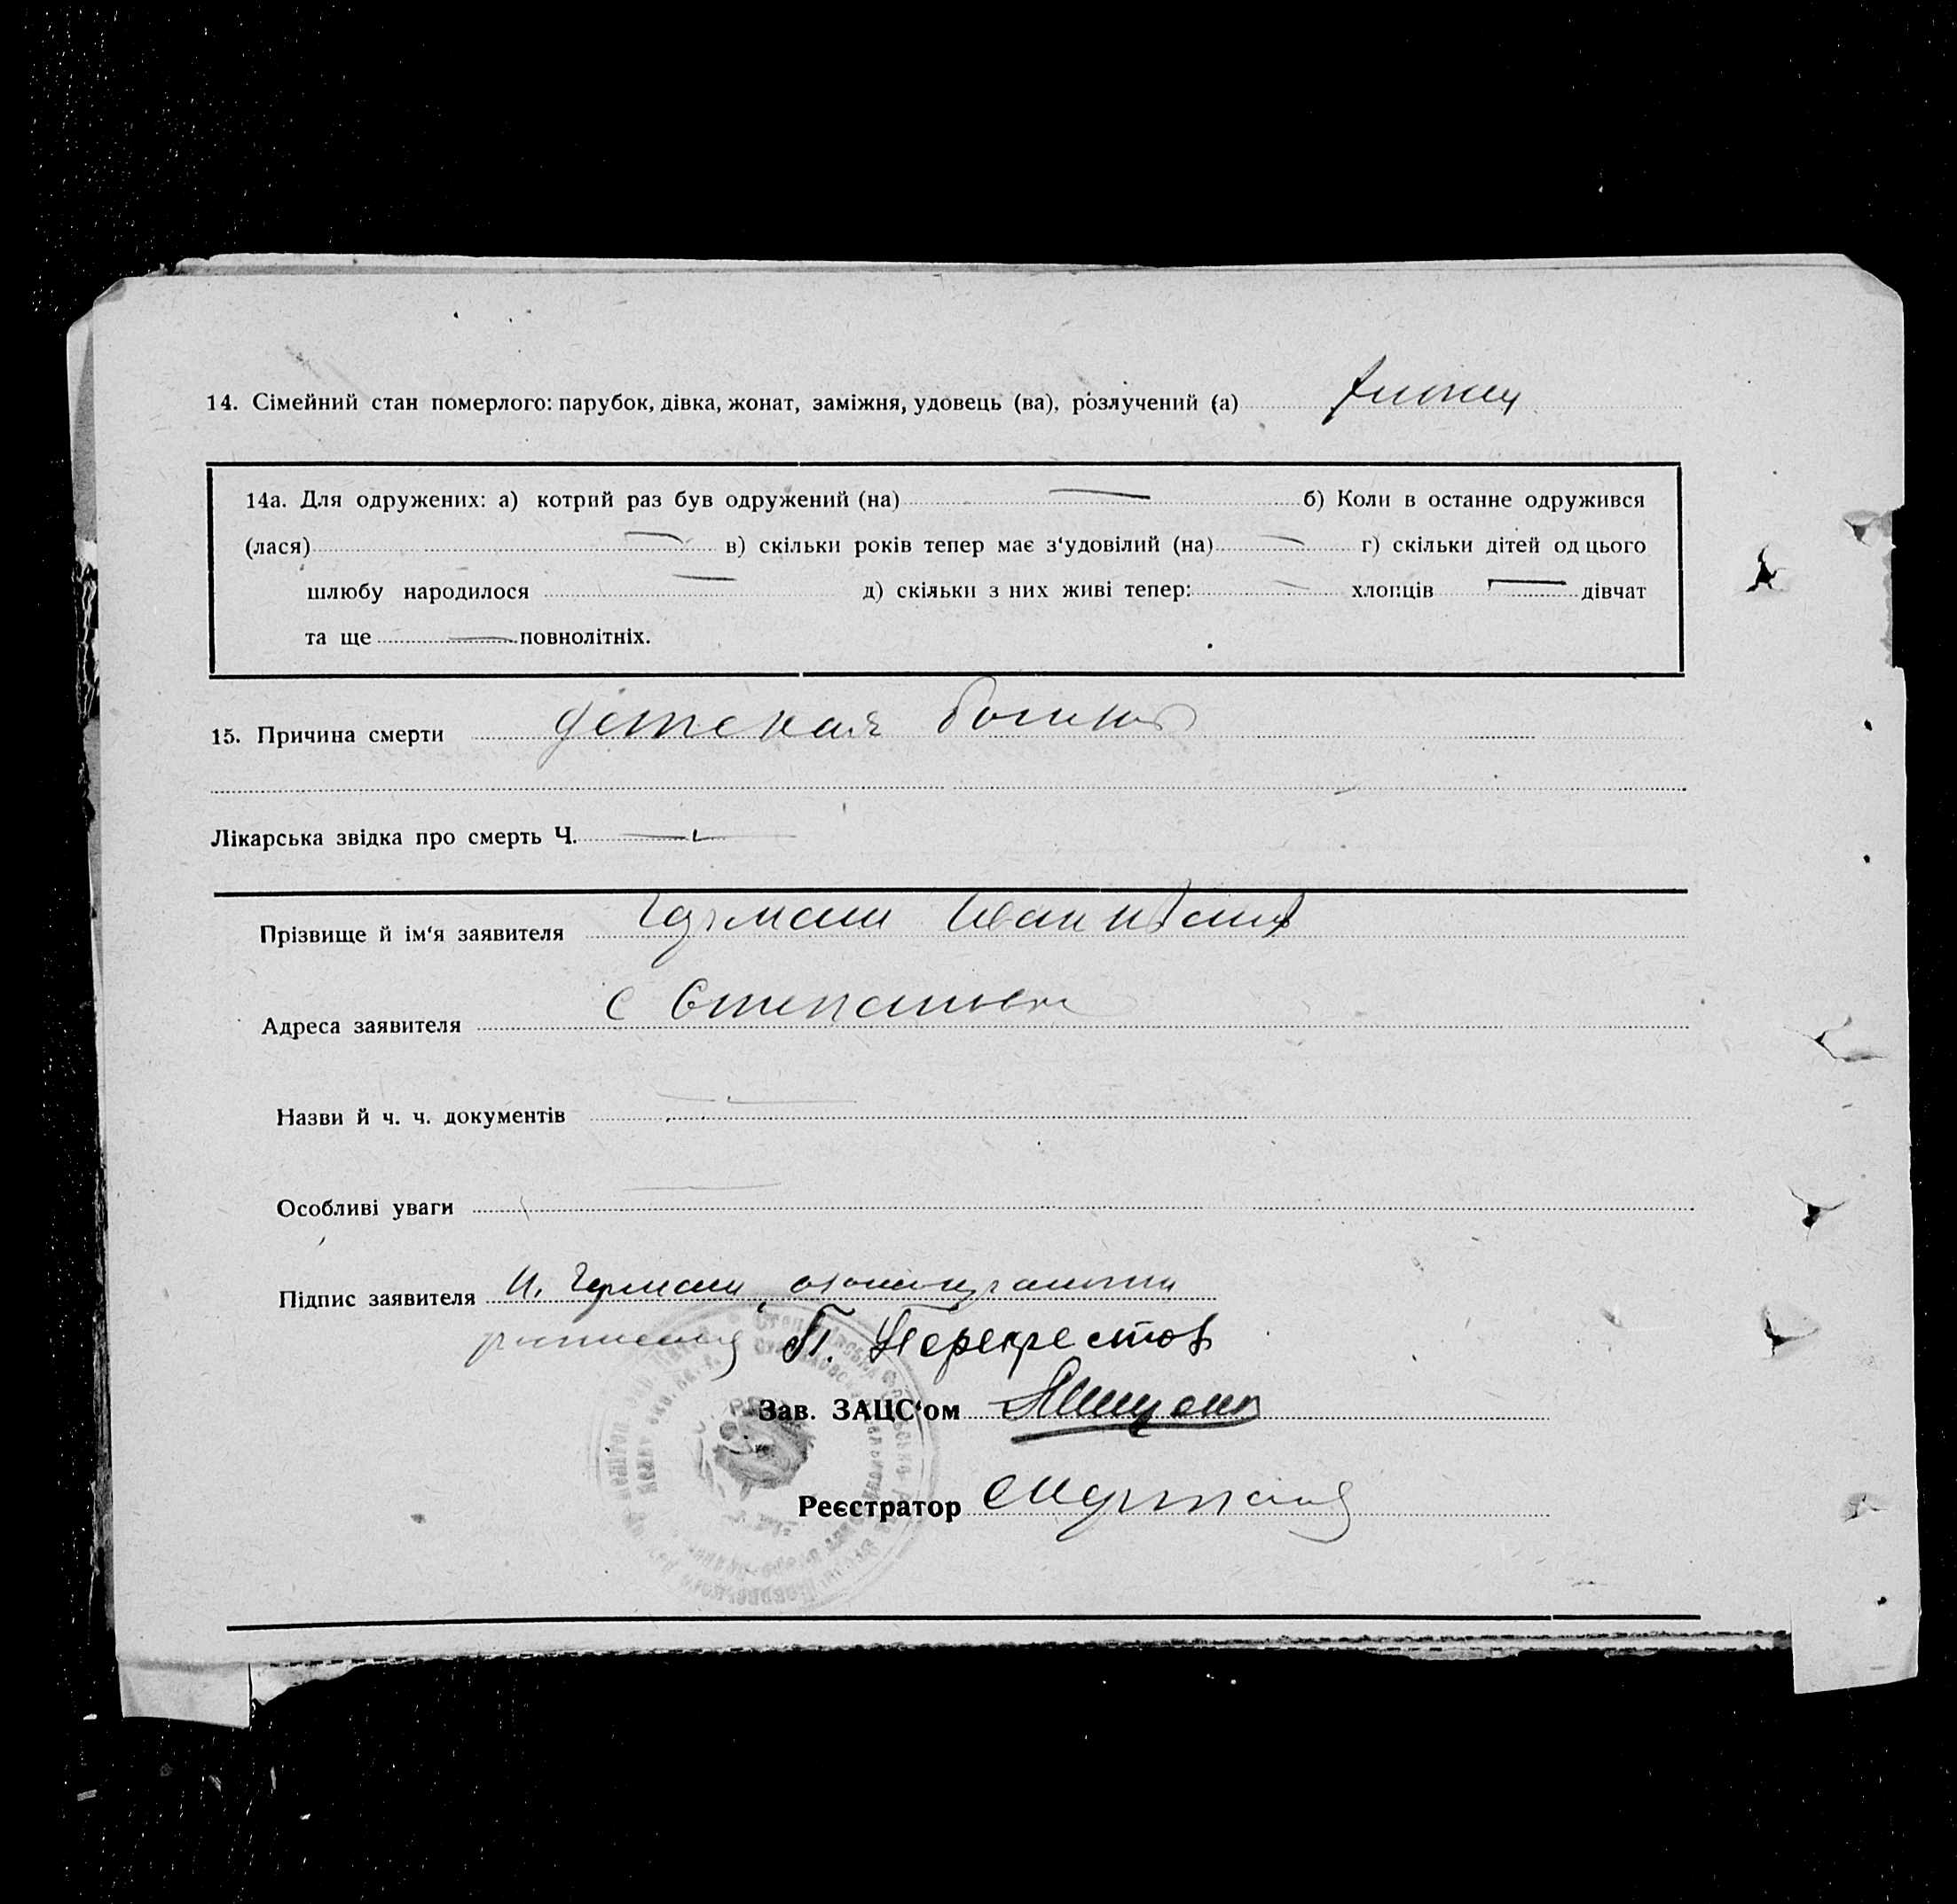 14. Сімейний стан померлого: парубок, дівка, жонат, заміжня, удовець (ва), розлучений (а)
14а. Для одружених: а) котрий раз був одружений (на) б) Коли в останне одружився
(лася) в) скільки років тепер має з'удовілий (на) г) скільки дітей од цього
шлюбу народилося д) скільки з них живі тепер: хлопців дівчат
та ще повнолітніх.
15. Причина смерти детская
Лікарська звідка про смерть Ч.
Прізвище й ім'я заявителя Герман Иван
Адреса заявителя с Степановка
Назви й ч. ч. документів
Особливі уваги
Підпис заявителя И. Герман
П. Перекрестов
Зав. ЗАЦС'ом
Реєстратор